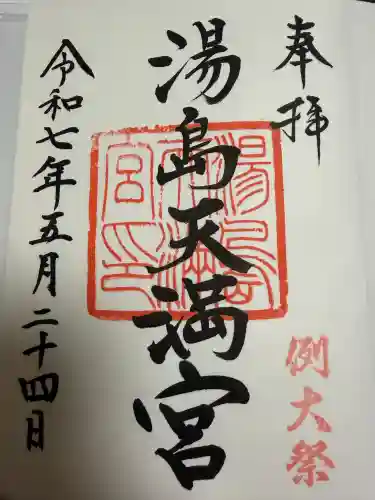 奉拝
例大祭
湯島天満宮
湯島天満宮印
令和七年五月二十四日